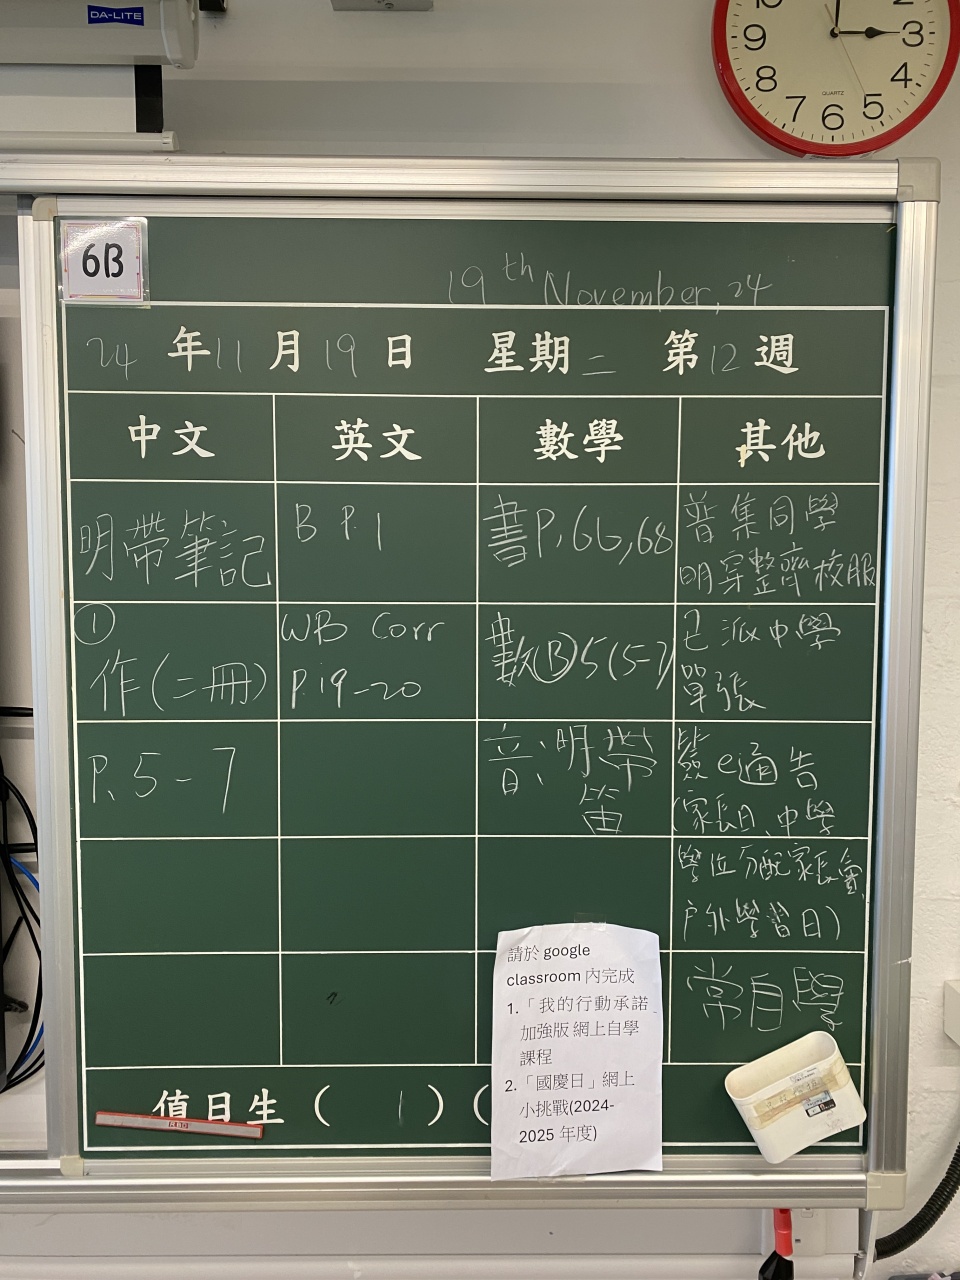 DA-LITE
10 2
9 3
8 4
7 6 5
QUARTZ
6B
19th November, 24
24 年 11 月 19 日 星期 二 第 12 週
中文 英文 數學 其他
明帶筆記
B P.1
書P.66,68
普集同學
明穿整齊校服
①
作(二冊)
WB Corr
P.19-20
數Ⓑ5(5-7)
已派中學
單張
P.5-7
音:明帶
笛
簽e通告
(家長日、中學
學位分配家長會
戶外學習日)
常自學
值日生 ( 1 ) (
請於 google
classroom 內完成
1.「我的行動承諾
加強版 網上自學
課程
2.「國慶日」網上
小挑戰(2024-
2025 年度)